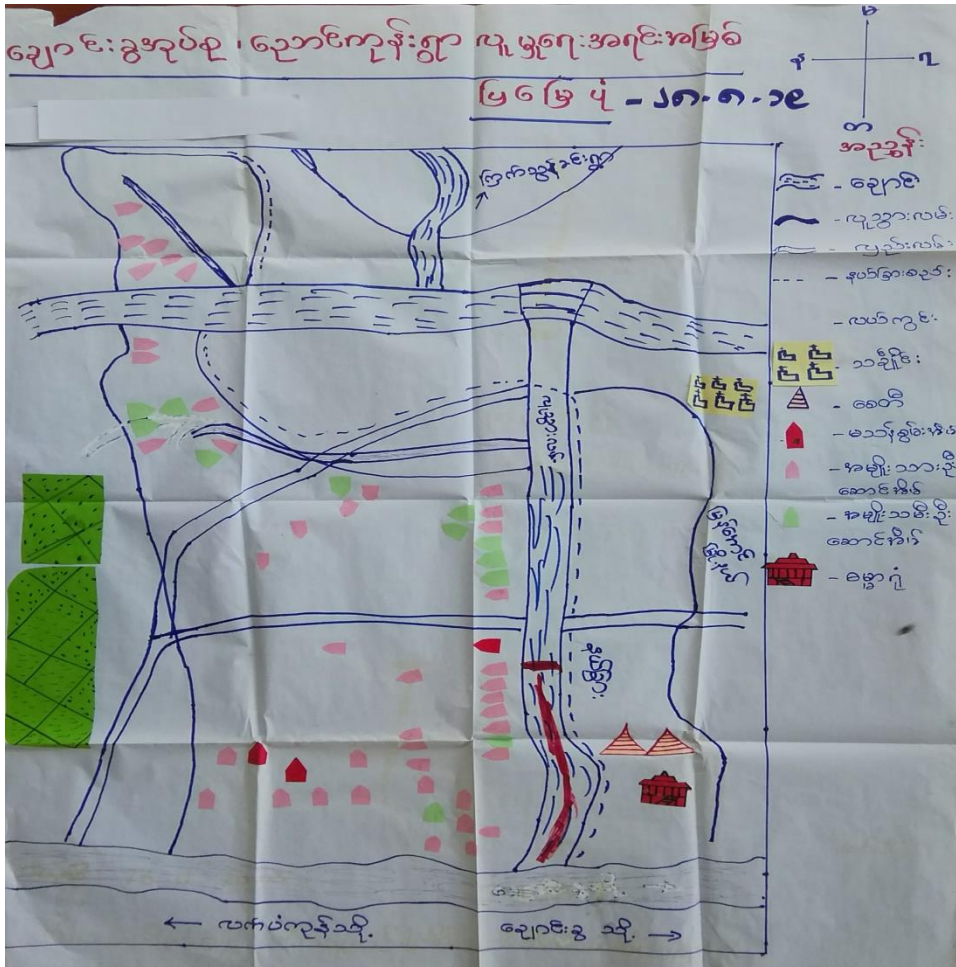 ချောင်းခွအုပ်စု ၊ ညောင်ကုန်းရွာ လူမှုရေးအရင်းအမြစ်
ပြမြေပုံ - ၂၈-၈-၁၉
မ
န
ရ
တ
အညွှန်း
- ချောင်း
- လူသွားလမ်း
- လှည်းလမ်း
- နယ်ခြားစည်း
- လယ်ကွင်း
- သင်္ချိုင်း
- စေတီ
- မသန်စွမ်းအိမ်
- အမျိုးသားဦး
ဆောင်အိမ်
- အမျိုးသမီးဦး
ဆောင်အိမ်
- ဓမ္မာရုံ
ကြက်သွန်ခင်းရွာ
လူသွားလမ်း
မြန်အောင်
မြို့နယ်
နယ်ခြား
← လက်ပံကုန်းသို့
ချောင်းခွ သို့ →